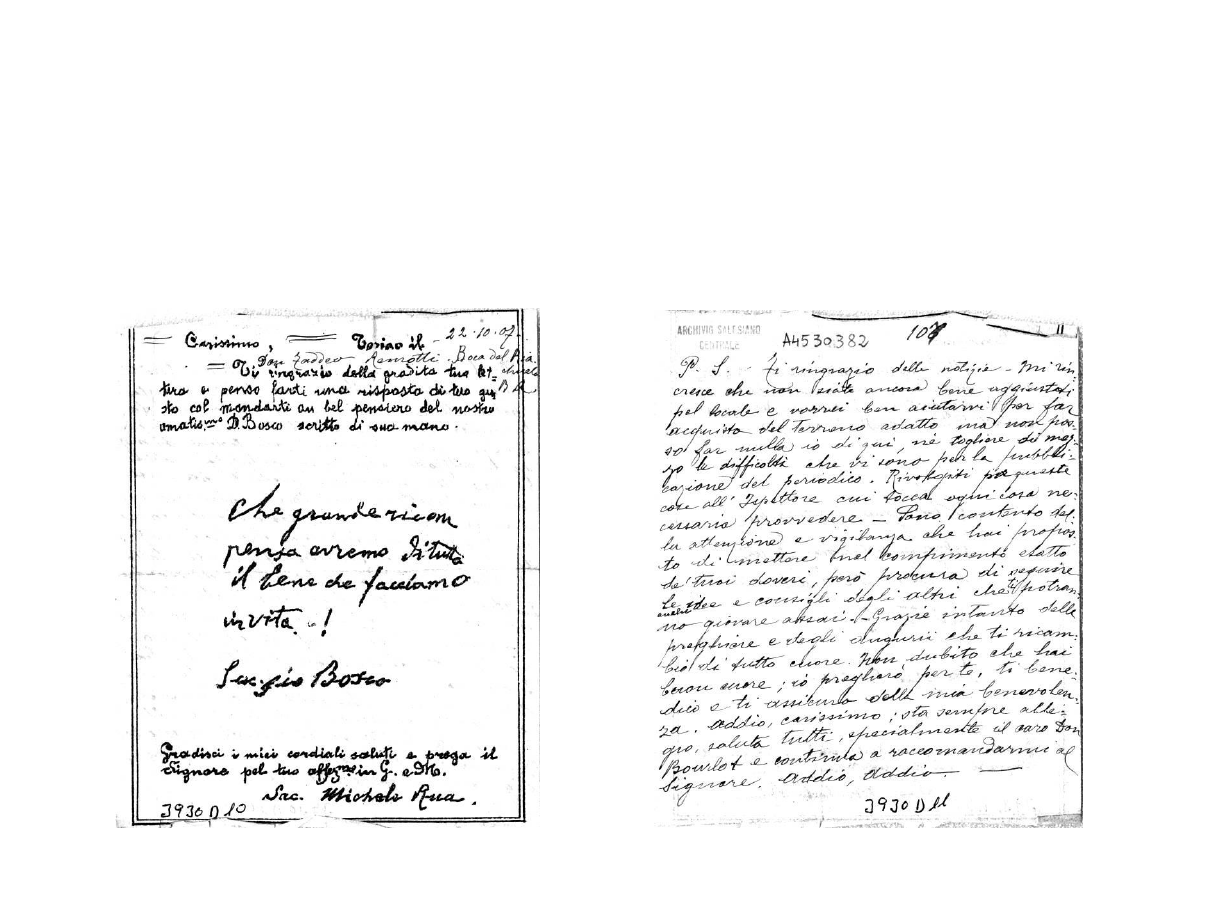 Carissimo, Torino il - 22.10.07.
Don Taddeo Remotti. Boca del Ria
Ti ringrazio della gradita tua let- chuelo
tera e penso farti una risposta di tuo gu- B A
sto col mandarti un bel pensiero del nostro
amatis.mo D. Bosco scritto di sua mano.
Che grande ricom
pensa avremo di tutto
il bene che facciamo
in vita. !
Sac. Gio Bosco
Gradisci i miei cordiali saluti e prega il
Signore pel tuo affez.mo in G. e M.
Sac. Michele Rua.
3930 D 10
ARCHIVIO SALESIANO
CENTRALE
A4530382
107
P. S. - Ti ringrazio delle notizie. Mi rin
cresce che non siate ancora bene aggiustati
pel locale e vorrei ben aiutarvi per far
acquisto del terreno adatto ma non pos-
so far nulla io di qui, nè togliere di mez-
zo le difficoltà che vi sono per la pubbli-
cazione del periodico. Rivolgiti per queste
cose all' Ispettore cui tocca ogni cosa ne-
cessaria provvedere - Sono contento del-
la attenzione e vigilanza che hai propos-
to di mettere nel compimento esatto
de' tuoi doveri, però procura di seguire
anche le idee e consigli degli altri che ti potran-
no giovare assai. - Grazie intanto delle
preghiere e degli augurii che ti ricam-
bio di tutto cuore. Non dubito che hai
buon cuore; io pregherò per te, ti bene-
dico e ti assicuro della mia benevolen-
za. Addio, carissimo; sta sempre alle-
gro, saluta tutti, specialmente il caro Don
Bourlot e continua a raccomandarmi al
Signore. Addio, Addio
3930 D 11